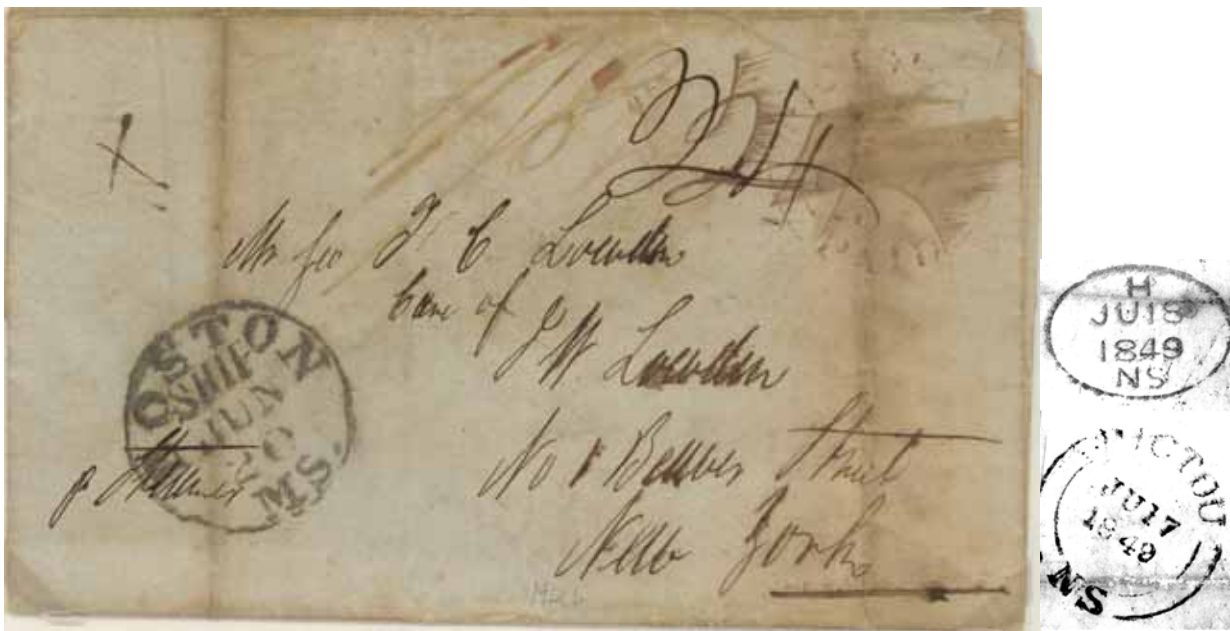 Mr Geo F. C Lowden
Care of
J W Lowden
No 1 Beaver Street
New York
p Steamer
OSTON
SHIP
JUN
20
MS.
H
JU 18
1849
NS
PICTOU
JU 17
1849
NS